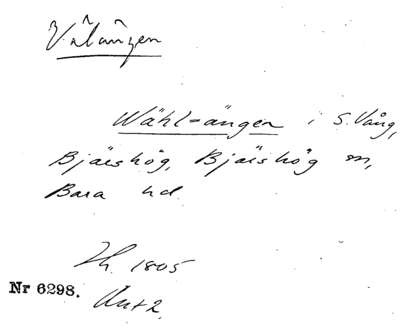 Välängen
Wähl-ängen i S. Vång,
Bjärshög, Bjärshög sn,
Bara hd.
Ih. 1805
Nr 6298.